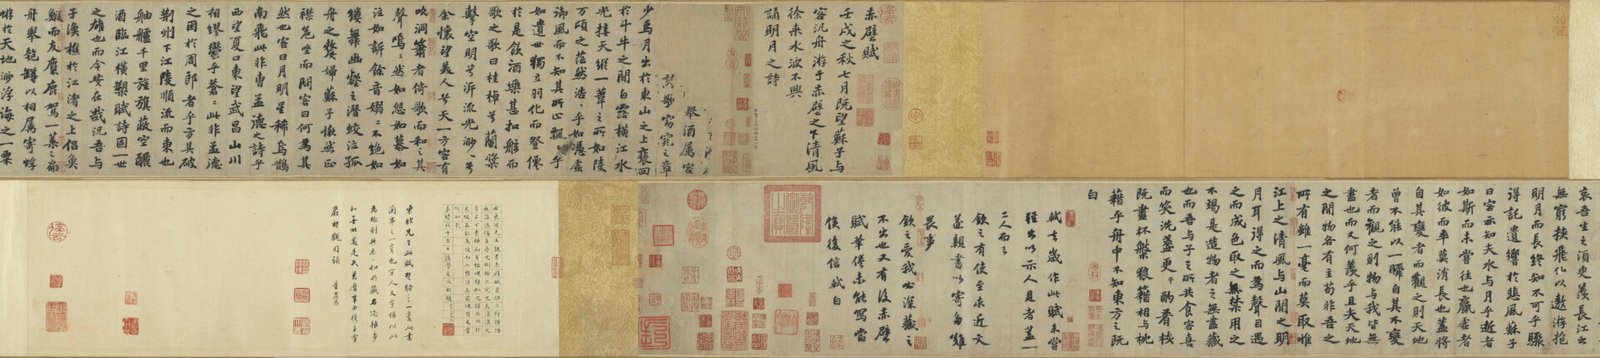 赤壁賦
壬戌之秋七月既望蘇子與
客汎舟遊于赤壁之下清風
徐來水波不興
誦明月之詩
舉酒屬客
歌窈窕之章
少焉月出於東山之上裴回
於斗牛之間白露橫江水
光接天縱一葦之所如陵
萬頃之茫然浩浩乎如馮虛
御風而不知其所止飄飄乎
如遺世獨立羽化而登僊
於是飲酒樂甚扣舷而
歌之歌曰桂棹兮蘭槳
擊空明兮泝流光渺渺兮
余懷望美人兮天一方客有
吹洞簫者倚歌而和之其
聲嗚嗚然如怨如慕如
泣如訴餘音嫋嫋不絕如
縷舞幽壑之潛蛟泣孤
舟之嫠婦蘇子愀然正
襟危坐而問客曰何爲其
然也客曰月明星稀烏鵲
南飛此非曹孟德之詩乎
西望夏口東望武昌山川
相繆鬱乎蒼蒼此非孟德
之困於周郎者乎方其破
荊州下江陵順流而東也
舳艫千里旌旗蔽空釃
酒臨江橫槊賦詩固一世
之雄也而今安在哉況吾與
子漁樵於江渚之上侶魚
鰕而友麋鹿駕一葉之扁
舟舉匏罇以相屬寄蜉
蝣於天地渺浮海之一粟
哀吾生之須臾羨長江之
無窮挾飛仙以遨遊抱
明月而長終知不可乎驟
得託遺響於悲風蘇子
曰客亦知夫水與月乎逝者
如斯而未嘗往也贏虛者
如彼而卒莫消長也蓋將
自其變者而觀之則天地
曾不能以一瞬自其不變
者而觀之則物與我皆無
盡也而又何羨乎且夫天地
之間物各有主苟非吾之
所有雖一毫而莫取惟
江上之清風與山間之明
月耳得之而爲聲目遇
之而成色取之無禁用之
不竭是造物者之無盡藏
也而吾與子之所共食客喜
而笑洗盞更酌肴核
既盡杯盤狼籍相與枕
藉乎舟中不知東方之既
白
軾去歲作此賦未嘗
輕出以示人見者蓋一
二人而已
欽之有使至求近文
遂親書以寄多難
畏事
欽之愛我必深藏之
不出也又有後赤壁
賦筆倦未能寫當
俟後信軾白
東坡先生此賦楚騷之一變此書
蘭亭之一變也宋人文字俱以此
董其昌